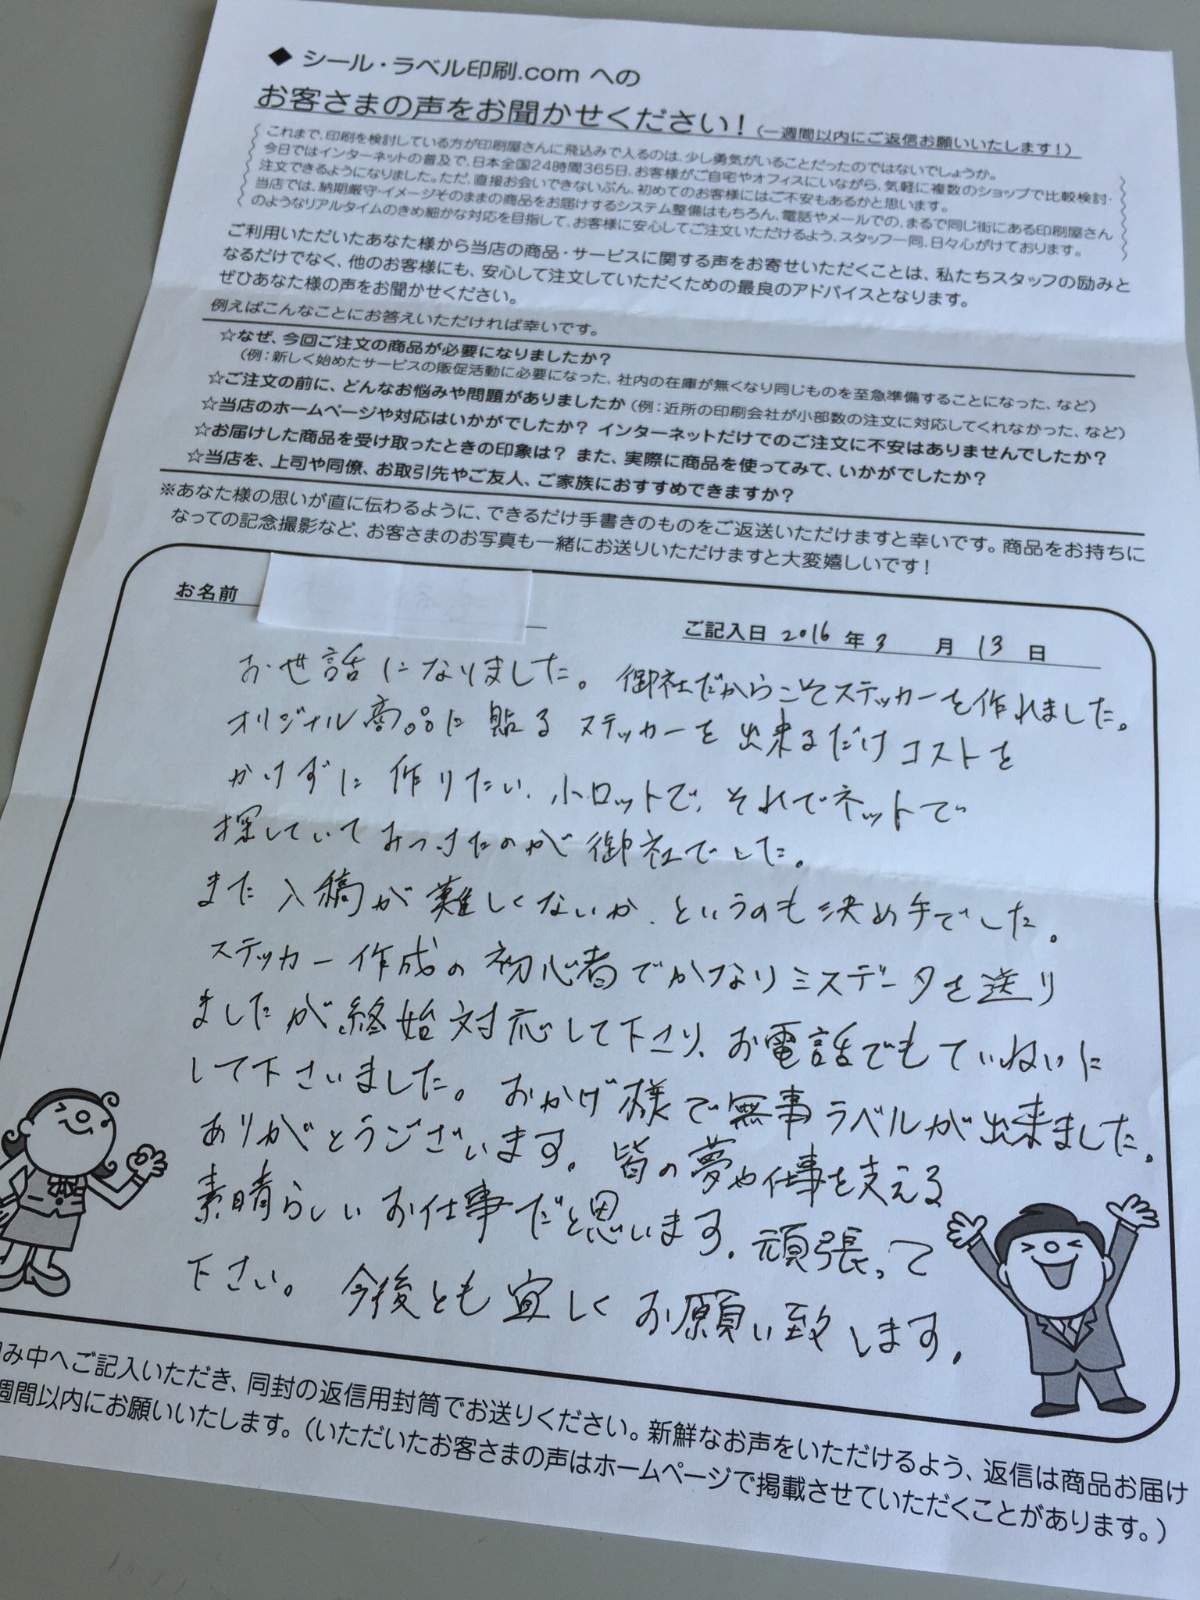 ◆ シール・ラベル印刷.com への
お客さまの声をお聞かせください！(一週間以内にご返信お願いいたします！)
これまで、印刷を検討している方が印刷屋さんに飛込みで入るのは、少し勇気がいることだったのではないでしょうか。
今日ではインターネットの普及で、日本全国24時間365日、お客様がご自宅やオフィスにいながら、気軽に複数のショップで比較検討・
注文できるようになりました。ただ、直接お会いできないぶん、初めてのお客様にはご不安もあるかと思います。
当店では、納期厳守・イメージそのままの商品をお届けするシステム整備はもちろん、電話やメールでの、まるで同じ街にある印刷屋さん
のようなリアルタイムのきめ細かな対応を目指して、お客様に安心してご注文いただけるよう、スタッフ一同、日々心がけております。
ご利用いただいたあなた様から当店の商品・サービスに関する声をお寄せいただくことは、私たちスタッフの励みと
なるだけでなく、他のお客様にも、安心して注文していただくための最良のアドバイスとなります。
ぜひあなた様の声をお聞かせください。
例えばこんなことにお答えいただければ幸いです。
☆なぜ、今回ご注文の商品が必要になりましたか？
(例：新しく始めたサービスの販促活動に必要になった、社内の在庫が無くなり同じものを至急準備することになった、など)
☆ご注文の前に、どんなお悩みや問題がありましたか (例：近所の印刷会社が小部数の注文に対応してくれなかった、など)
☆当店のホームページや対応はいかがでしたか？ インターネットだけでのご注文に不安はありませんでしたか？
☆お届けした商品を受け取ったときの印象は？ また、実際に商品を使ってみて、いかがでしたか？
☆当店を、上司や同僚、お取引先やご友人、ご家族におすすめできますか？
※あなた様の思いが直に伝わるように、できるだけ手書きのものをご返送いただけますと幸いです。商品をお持ちに
なっての記念撮影など、お客さまのお写真も一緒にお送りいただけますと大変嬉しいです！
お名前
ご記入日 2016 年 3 月 13 日
お世話になりました。御社だからこそステッカーを作れました。
オリジナル商品に貼るステッカーを出来るだけコストを
かけずに作りたい、小ロットで、それでネットで
探していてみつけたのが御社でした。
また入稿が難しくないか、というのも決め手でした。
ステッカー作成の初心者でかなりミスデータを送り
ましたが終始対応して下さり、お電話でもていねいに
して下さいました。おかげ様で無事ラベルが出来ました。
ありがとうございます。皆の夢や仕事を支える
素晴らしいお仕事だと思います。頑張って
下さい。今後とも宜しくお願い致します。
み中へご記入いただき、同封の返信用封筒でお送りください。新鮮なお声をいただけるよう、返信は商品お届け
週間以内にお願いいたします。（いただいたお客さまの声はホームページで掲載させていただくことがあります。）